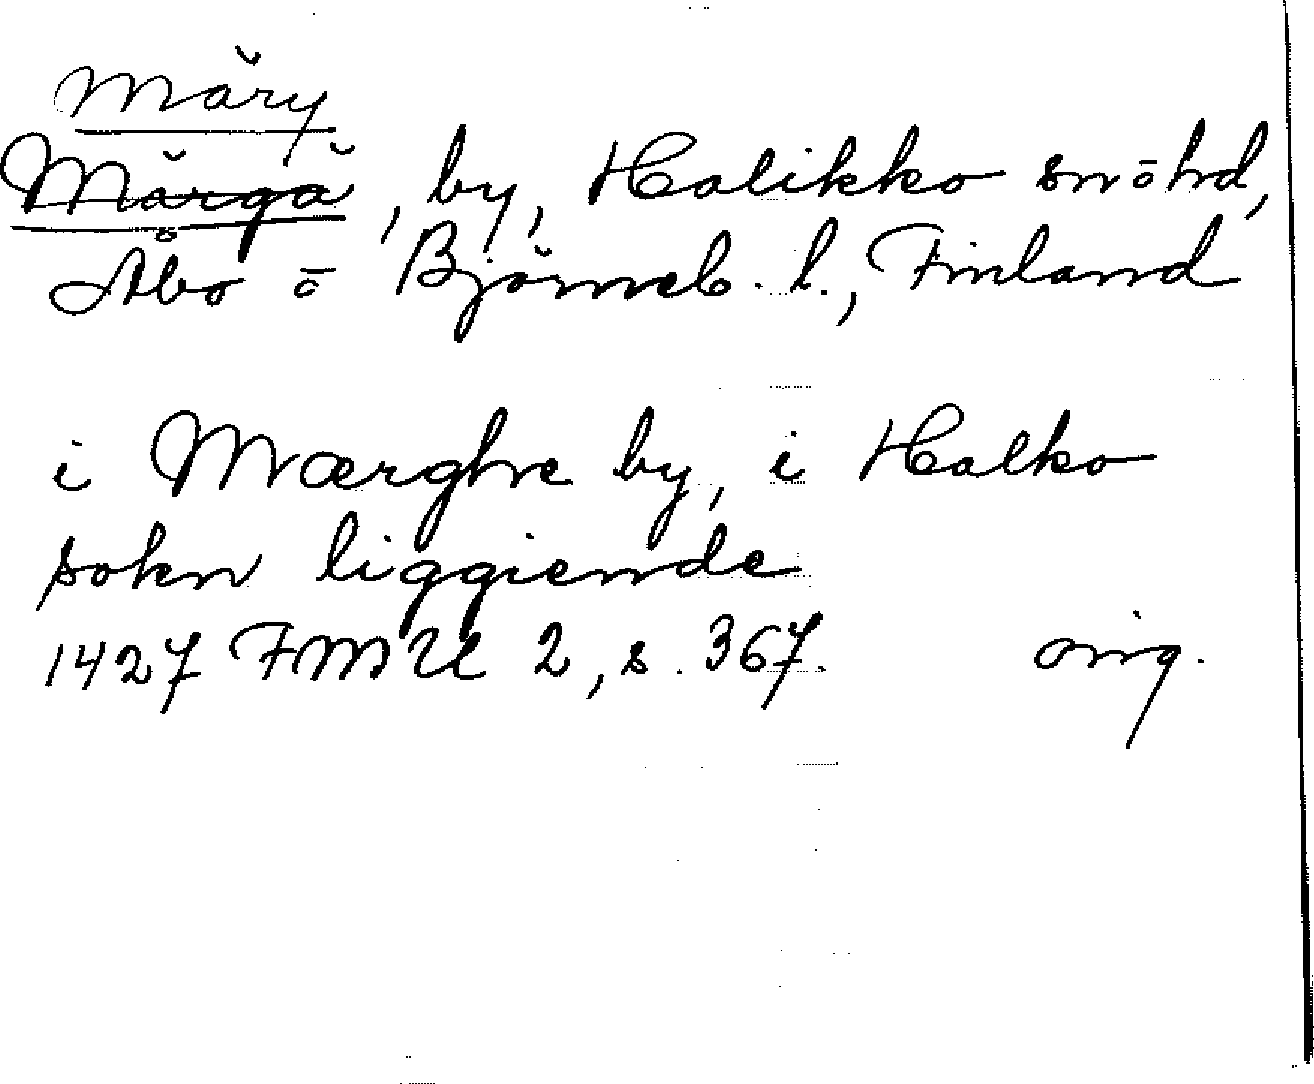 Märy
Märgä, by, Halikko sn o hd,
Åbo o Björneb. l., Finland
i Mærghe by, i Halko
sokn liggiende
1427 FMU 2, s. 367. orig.